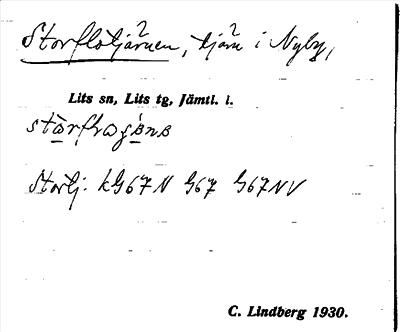 Storflotjärnen, tjärn i Nyby,
Lits sn, Lits tg, Jämtl. l.
Stortj. kG67N G67 G67NV
C. Lindberg 1930.